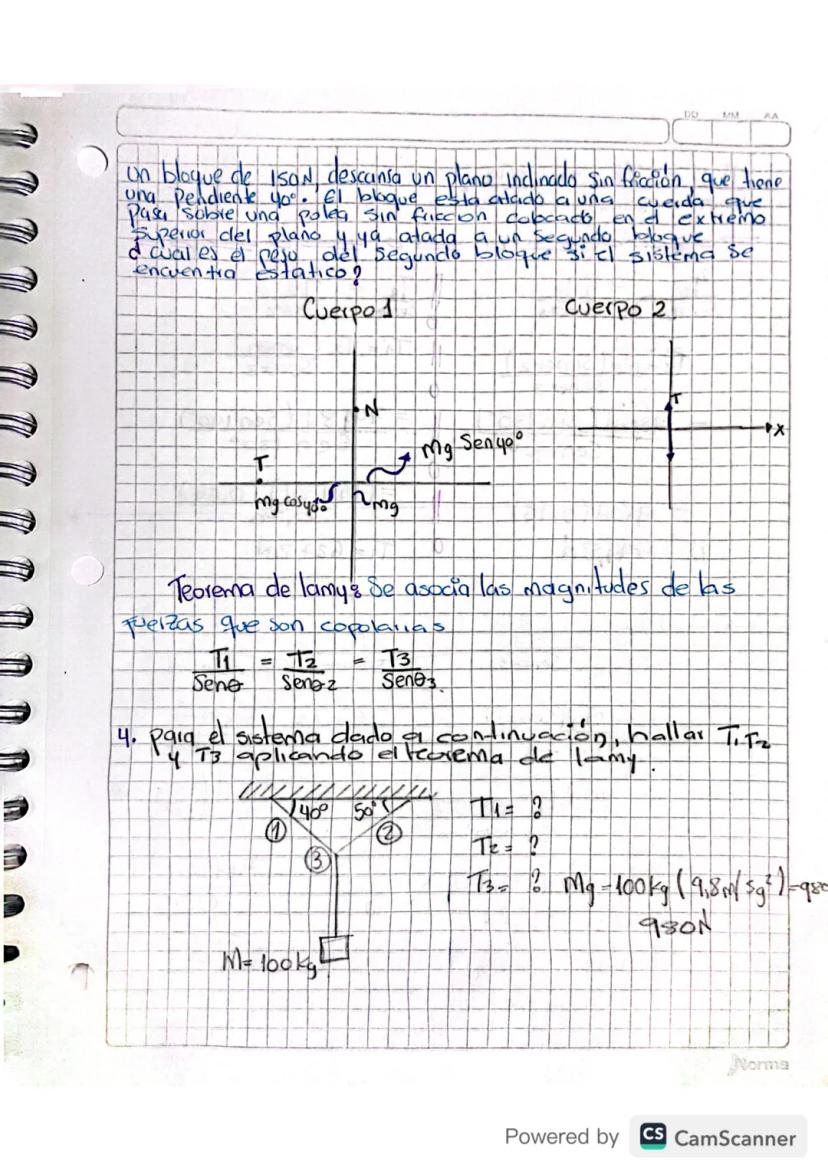 DD MM AA
un bloque de 150N, descansa un plano inclinado sin fricción, que tiene
una pendiente 40°. El bloque esta atado a una cuerda que
pasa sobre una polea sin friccion colocado en el extremo
superior del plano y ya atada a un segundo bloque
d cual es el peso del segundo bloque si el sistema se
encuentra estático?
Cuerpo 1
Cuerpo 2
N
T
Mg Sen40°
T
X
mg cos40°
mg
Teorema de lamy: Se asocia las magnitudes de las
fuerzas que son copolarias
T1/Senθ = T2/Senθ2 = T3/Senθ3
4. para el sistema dado a continuación, hallar T1, T2
y T3 aplicando el teorema de lamy.
40° 50°
T1 = ?
1 2
T2 = ?
3
T3 = ? Mg = 100kg (9,8m/sg²) = 980
980N
M= 100kg
Norma
Powered by CS CamScanner